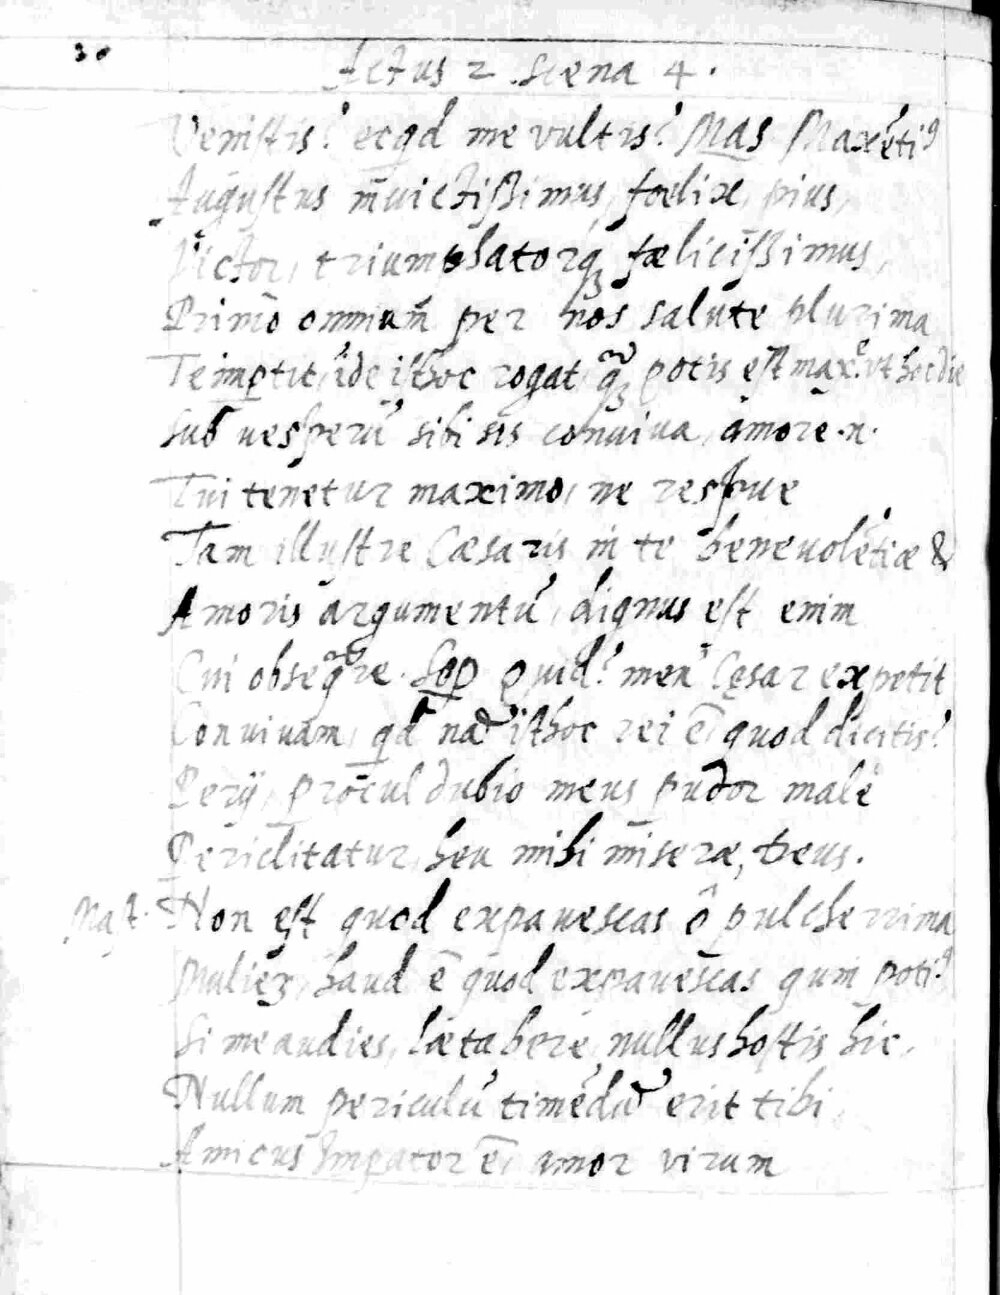 30
Actus 2 scena 4.
Venistis? ecqd me vultis? Mas Maxẽti9
Augustus invictissimus, fœlix, pius,
Victor, triumphatorq; fœlicissimus,
Primò omnium per nos salute plurima
Te impertit, ide isthoc rogat, potis est max. vt hodie
sub vesperũ sibi sis conviva, amore .n.
Tui tenetur maximo, ne respue
Tam illustre Cæsaris in te benevolẽtiæ &
Amoris argumentũ, dignus est enim
Cui obseqre. Sop Quid? men Cęsar expetit
Convivam, qd nã isthoc rei ẽ quod dicitis?
Perij, procul dubio meus pudor malè
Periclitatur, heu mihi miseræ, Deus.
Mast. Non est quod expavescas ô pulcherrima
Mulier, haud ẽ quod expavescas quin poti9
Si me audies, lætabere, nullus hostis hic,
Nullum periculũ timẽdũ erit tibi,
Amicus Impator ẽ, amor virum